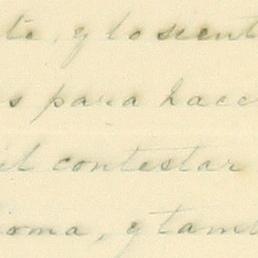 te, y lo sient
s para hace
il contestar
ioma, y tamb